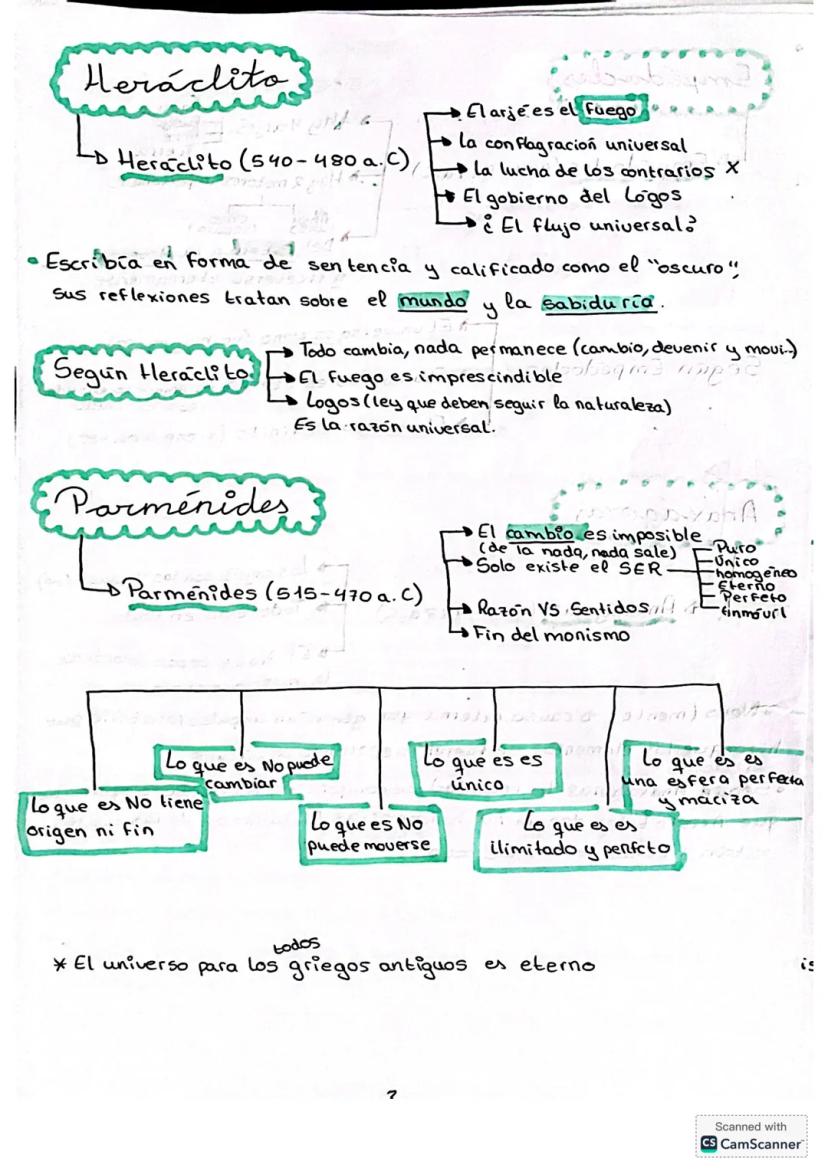 Heráclito
Heráclito (540-480 a.C)
El arjé es el fuego
La conflagración universal
La lucha de los contrarios X
El gobierno del Lógos
¿El flujo universal?
• Escribía en forma de sentencia y calificado como el "oscuro",
sus reflexiones tratan sobre el mundo y la sabiduría.
Según Heráclito
Todo cambia, nada permanece (cambio, devenir y movi..)
El fuego es imprescindible
Logos (ley que deben seguir la naturaleza)
Es la razón universal.
Parménides
Parménides (515-470 a.C)
El cambio es imposible
(de la nada, nada sale)
Solo existe el SER
Puro
Único
homogéneo
Eterno
Perfeto
Razón VS Sentidos
Fin del monismo
Lo que es No tiene
origen ni fin
Lo que es No puede
cambiar
Lo que es No
puede moverse
Lo que es es
único
Lo que es es
ilimitado y perfcto
Lo que es es
una esfera perfecta
y maciza
todos
* El universo para los griegos antiguos es eterno
is
?
Scanned with
CS CamScanner